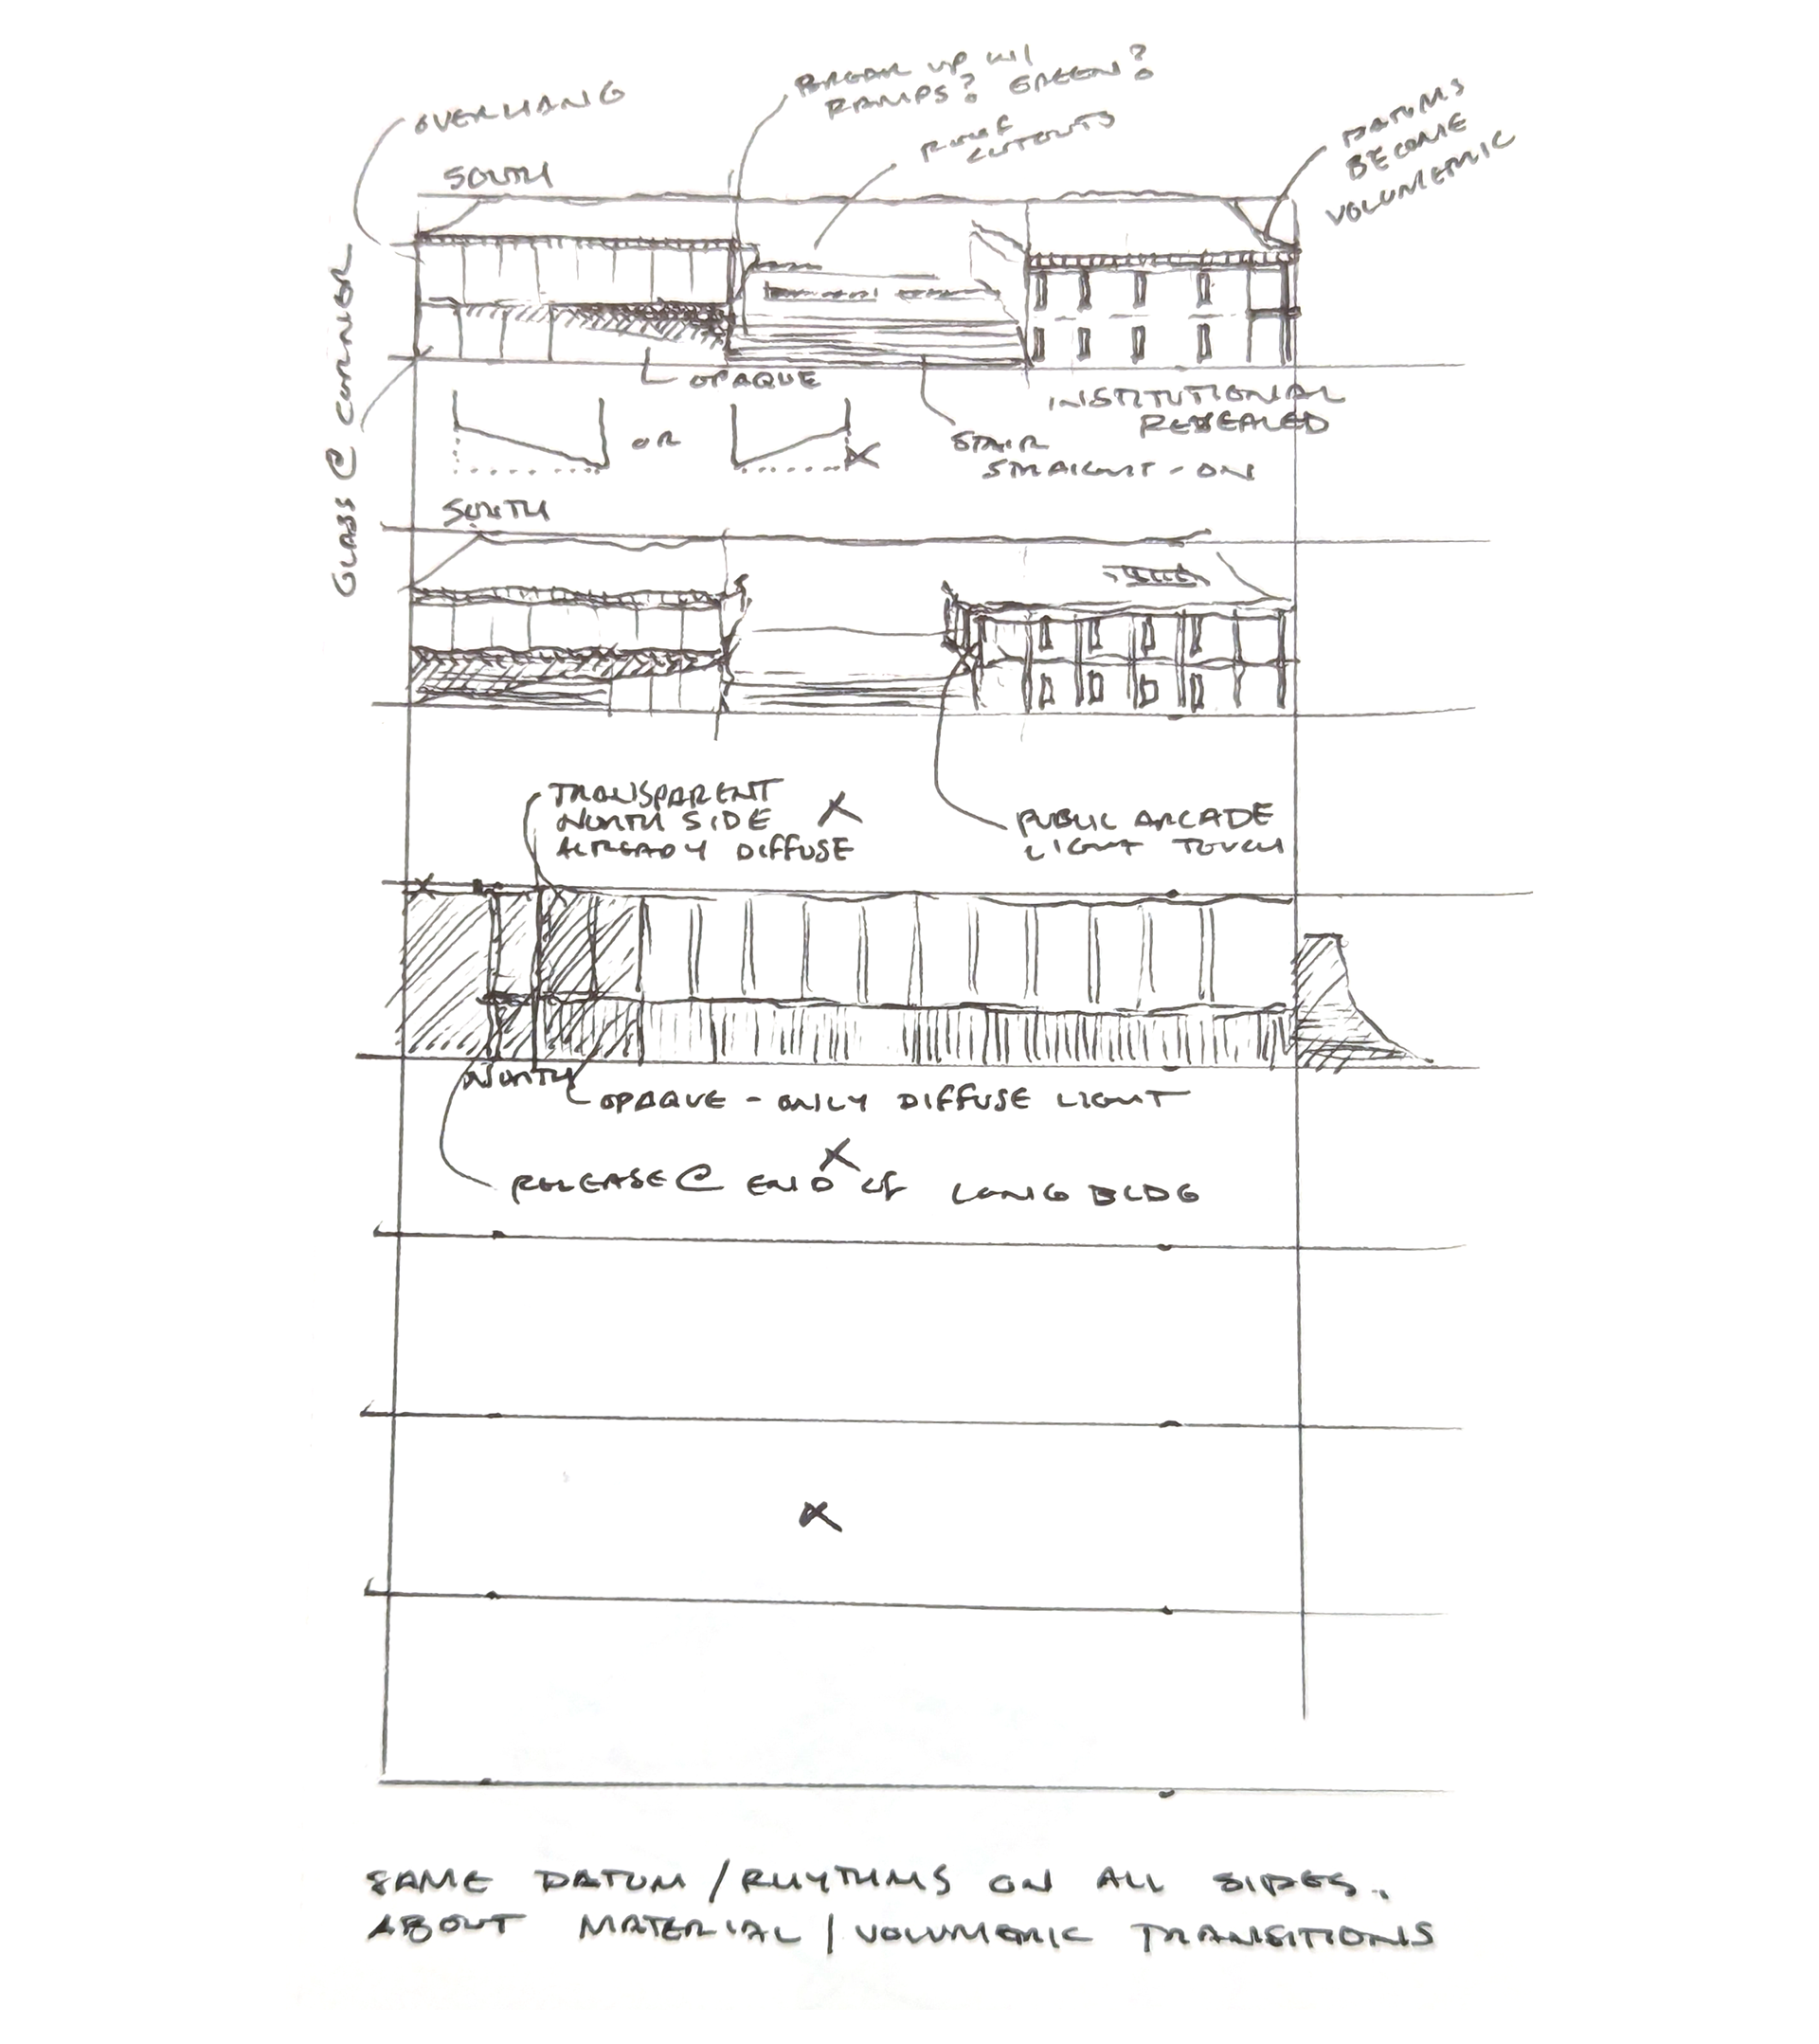 OVERHANG
BREAK UP W/
RAMPS? GREEN?
ROOF
CUTOUTS
DATUMS
BECOME
VOLUMEMIC
SOUTH
GLASS @ CORNER
OPAQUE
OR
INSTITUTIONAL
REVEALED
STAIR
STRAIGHT-ON
SOUTH
TRANSPARENT
NORTH SIDE
ALREADY DIFFUSE
PUBLIC ARCADE
LIGHT TOUCH
NORTH
OPAQUE - ONLY DIFFUSE LIGHT
RELEASE @ END OF LONG BLDG
SAME DATUM / RHYTHMS ON ALL SIDES.
ABOUT MATERIAL / VOLUMEMIC TRANSITIONS